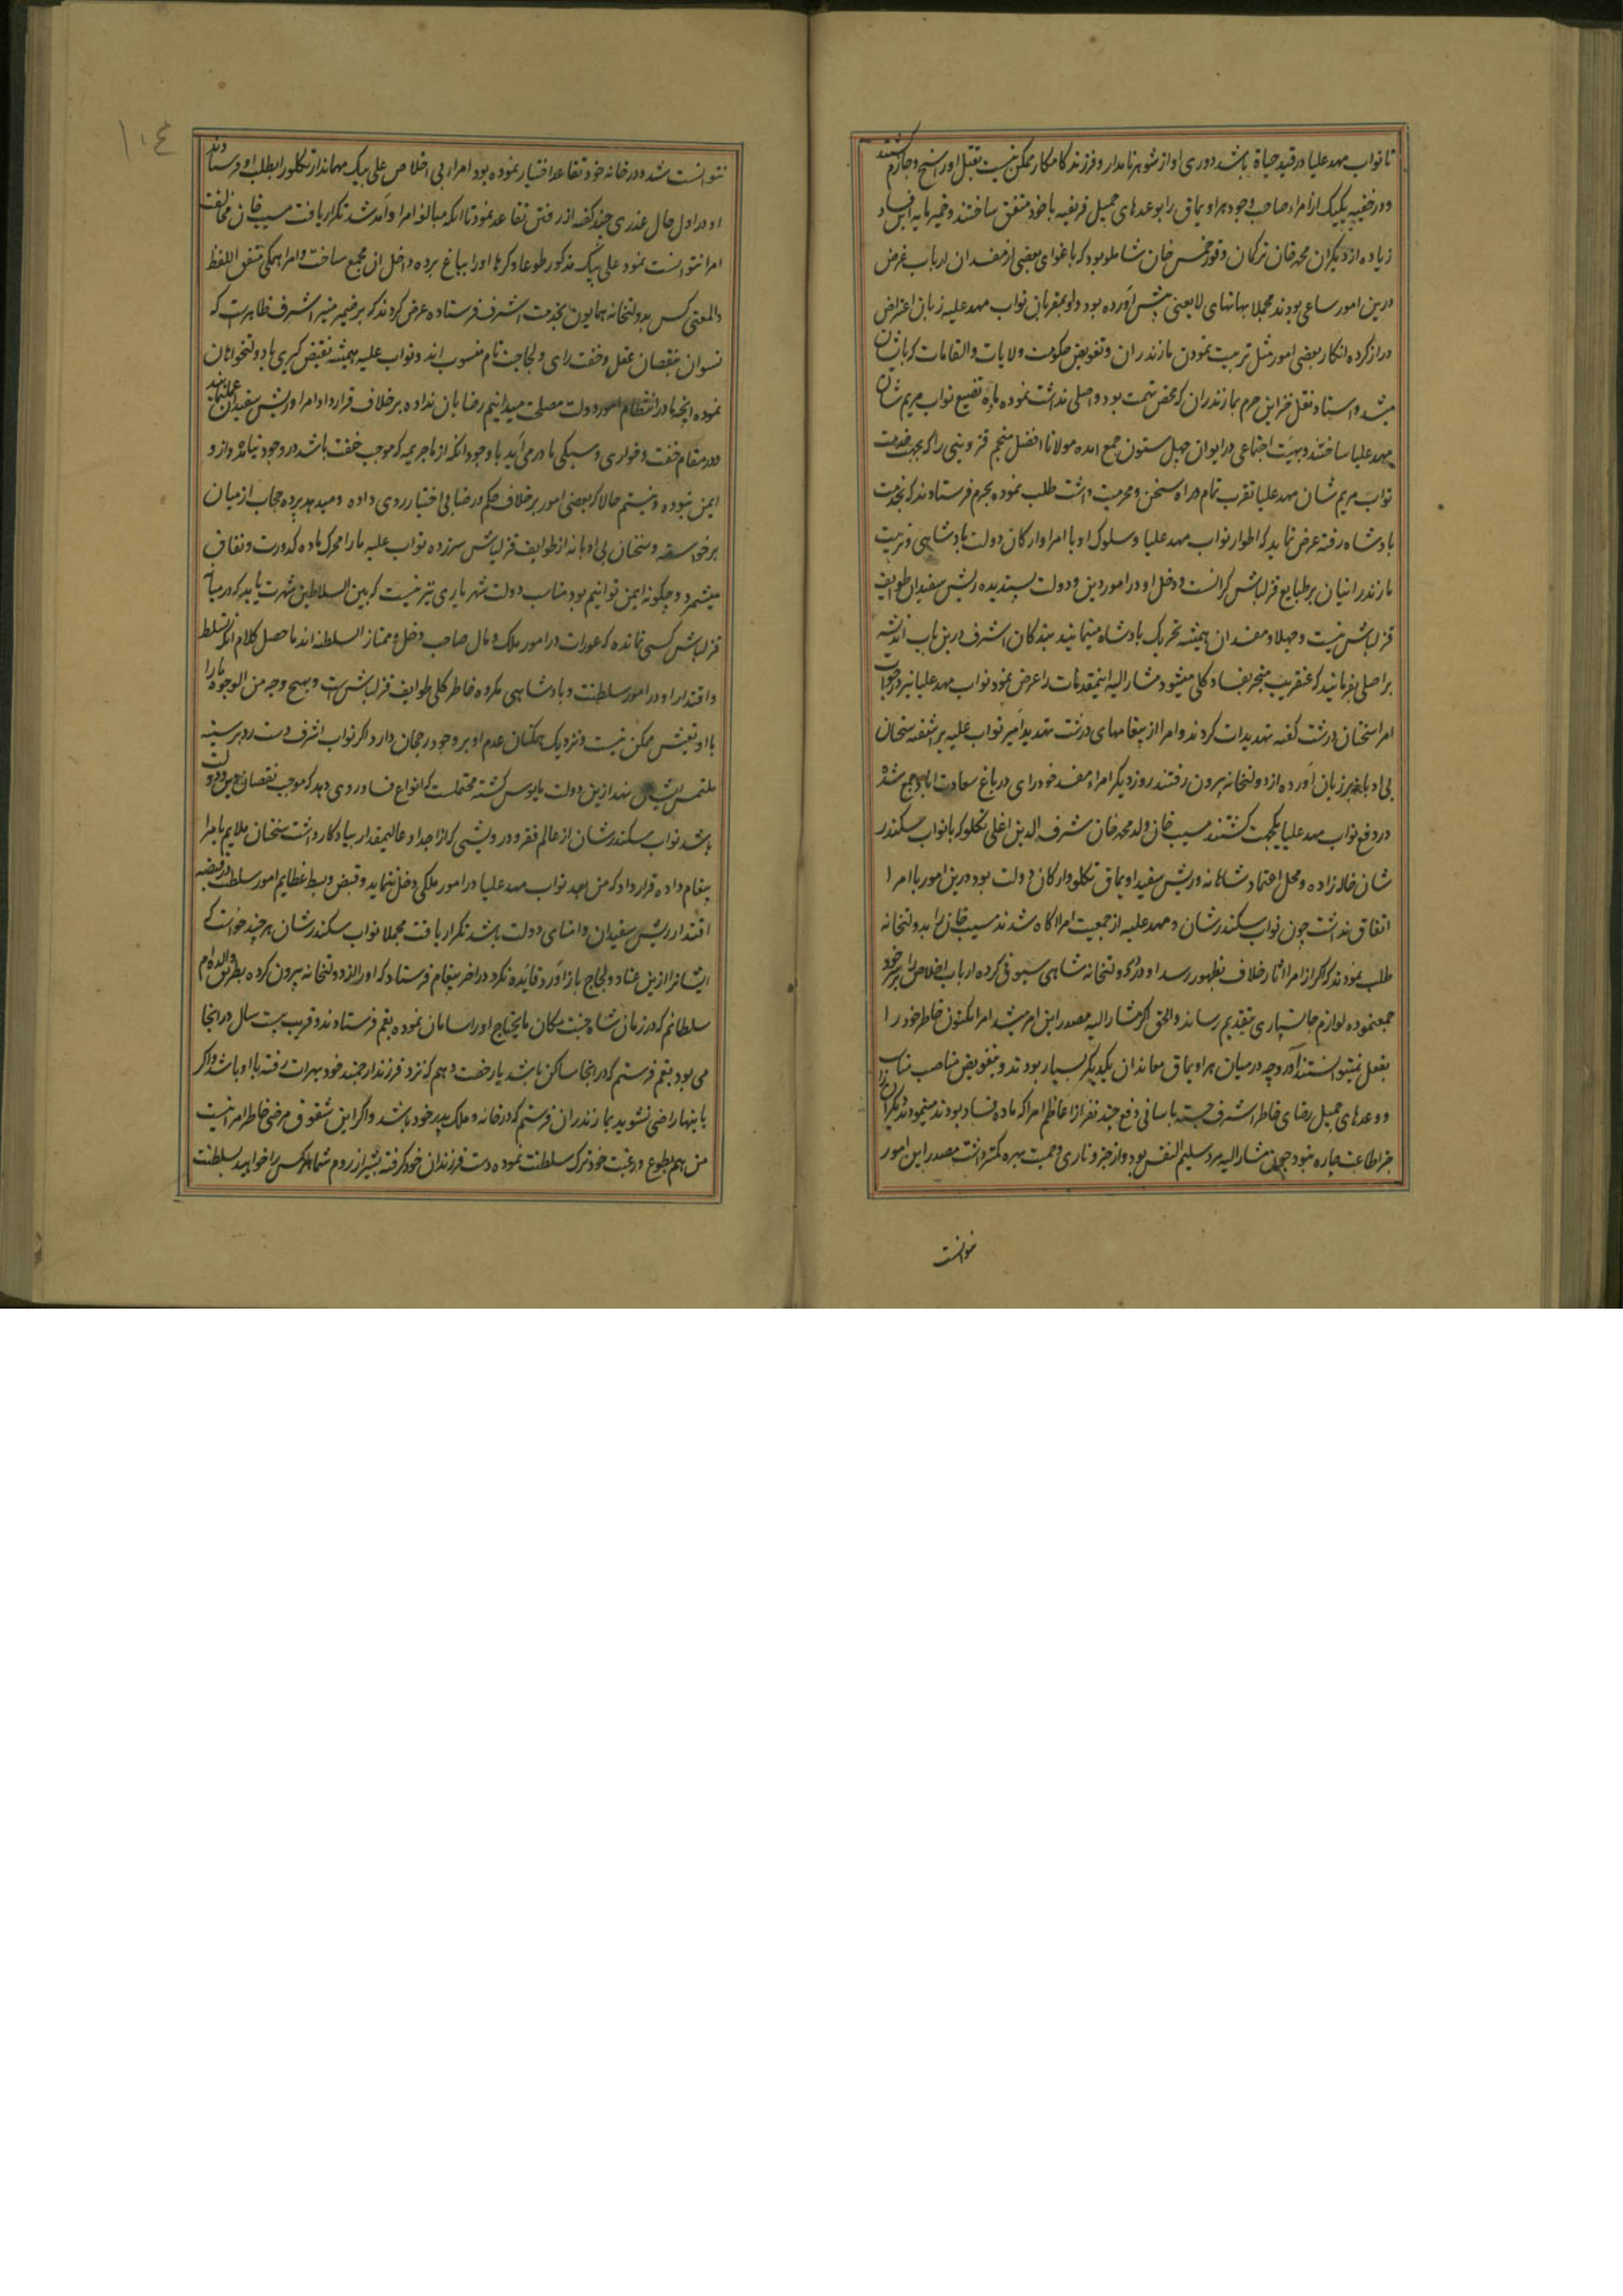 تا نواب مهد علیا در قید حیاة باشد دوری او از شوهر نامدار و فرزند کامکار ممکن نیست بقتل او راسخ و جازم گشتند
و در خفیه یکیک از امراء صاحب وجود هر اویماق را بوعدهای جمیل فریفته با خود متفق ساختند و خمیر مایه این فساد
زیاده از دیگران محمد خان ترکمان و قورخمس خان شاملو بود که باغوای بعضی از مفسدان ارباب غرض
درین امور ساعی بودند مجملا بهانهای لایعنی پیش آورده بود و او بمقربان نواب مهد علیه زبان اعتراض
دراز کرده انکار بعضی امور مثل تربیت نمودن مازندران و تفویض حکومت ولایات و القابات که باینان
میشد و اسناد نقل خزاین حرم بمازندران که محض تهمت بود و اصلی نداشت نموده مادۀ تضییع نواب مریم شان
مهد علیا ساختند و بهیئت اجتماعی در ایوان چهل ستون جمع امده مولانا افضل منجم قزوینی را که بجهت خدمت
نواب مریم شان مهد علیا تقرب تمام و راه سخن و محرمیت داشت طلب نموده بحرم فرستادند که بخدمت
بادشاه رفته عرض نماید که اطوار نواب مهد علیا و سلوک او با امرا و ارکان دولت بادشاهی و تربیت
مازندرانیان بر طبایع قزلباش گرانست و دخل او در امور دین و دولت پسندیده ریش سفیدان طوایف
قزلباش نیست و جهلا و مفسدان همیشه تحریک بادشاه مینمایند بندکان اشرف درین باب اندیشه
بر اصلی بفرمایند که عنقریب منجر بفساد کلی میشود مشار الیه اینمقدمات را عرض نمود نواب مهد علیا نیز در جواب
امرا سخنان درشت گفته تهدیدات کردند و امرا از پیغامهای درشت تهدید آمیز نواب علیه برآشفته سخنان
بی ادبانه بر زبان آورده از دولتخانه بیرون رفتند روز دیگر امراء مفسد خودرای در باغ سعادت اباد جمع شده
در دفع نواب مهد علیا یکجهت گشتند مسیب خان ولد محمد خان شرف الدین اغلی تکلو که با نواب سکندر
شان خاله زاده و محل اعتماد شاهانه و ریش سفید اویماق تکلو و ارکان دولت بود درین امور با امرا
اتفاق نداشت چون نواب سکندر شان و مهد علیه از جمعیت امرا اکاه شدند مسیب خان را بدولتخانه
طلب نمودند که اگر از امرا اثار خلاف بظهور رسد او در دولتخانه شاهی سیوق کرده ارباب اخلاص را بر سر خود
جمع نموده لوازم جانسپاری بتقدیم رساند و الحق اگر مشار الیه مصدر این امر میشد امرا مکنون خاطر خود را
بفعل نمیتوانستند آورد چه در میان هر اویماق معاندان یکدیگر بسیار بودند و بتفویض مناصب مناسب
و وعدهای جمیل رضای خاطر اشرف جسته باسانی دفع چند نفر از اعاظم امرا که ماده فساد بودند مینمودند دیگران را
جز اطاعت چاره نبود چون مشار الیه مرد سلیم النفس بود و از جزو ناری و حمیت بهره کمتر داشت مصدر این امور
نتوانست
نتوانست شد و در خانه خود تقاعد اختیار نموده بود امراء بی اخلاص علی بیک مهماندار تکلو را بطلب او فرستادند
او در اول حال عذری چند گفته از رفتن تقاعد نمود تا انکه مبالغه امرا و آمد شد تکرار یافت مسیب خان مخالفت
امرا نتوانست نمود علی بیک مذکور طوعا و کرها او را بباغ برده داخل ان مجمع ساخت و امرا همگی متفق اللفظ
والمعنی کس بدولتخانه همایون بخدمت اشرف فرستاده عرض کردند که بر ضمیر منیر اشرف ظاهر است که
نسوان بنقصان عقل و خفت رای و لجاجت تام منسوب اند و نواب علیه همیشه نقیض گیری ما دولتخواهان
نموده انچه ما در انتظام امور دولت مصلحت میدانیم رضا بان نداده بر خلاف قرارداد امرا و ریش سفیدان عمل مینماید
و در مقام خفت و خواری و سبکی ما در می آید با وجود انکه از ما جریمه که موجب خفت باشد در وجود نیامده و از او
ایمن نبوده و نیستم حالا که بعضی امور بر خلاف حکم و رضا بی اختیار روی داده و میدهد پرده حجاب از میان
برخواسته و سخنان بی ادبانه از طوایف قزلباش سر زده نواب علیه ما را محرک ماده کدورت و نفاق
میشمرد و چگونه ایمن توانیم بود مناسب دولت شهریاری نیز نیست که بین السلاطین شهرت یابد که در میان
قزلباش کسی نمانده که عورات در امور ملک و مال صاحب دخل و ممتاز السلطنه اند ما حصل کلام انکه تسلط
و اقتدار او در امور سلطنت و بادشاهی مکروه خاطر کلی طوایف قزلباش است و بهیچ وجه من الوجوه ما را
با او تعیش ممکن نیست و نزدیک همکنان عدم او بر وجود رجحان دارد اگر نواب اشرف دست رد بر سینه
ملتمس ایشان نهد ازین دولت مایوس گشته محتملست که انواع فساد روی دهد که موجب نقصان دین و دولت
باشد نواب سکندر شان از عالم فقر و درویشی که از اجداد عالیمقدار بیادکار داشت سخنان ملایم بامرا
پیغام داده قرار داد که من بعد نواب مهد علیا در امور ملکی دخل ننماید و قبض و بسط عظایم امور سلطنت در قبضه
اقتدار ریش سفیدان و امنای دولت باشد تکرار یافت مجملا نواب سکندر شان هر چند خواست که
ایشانرا ازین عناد و لجاج باز آورد فایده نکرد در اخر پیغام فرستاد که او را از دولتخانه بیرون کرده بطرف والده ام
سلطانم که در زمان شاه جنت مکان مایحتاج او را سامان نموده بقم فرستادند و قریب بیست سال در انجا
می بود بقم فرستم که در انجا ساکن باشد یا رخصت دهم که نزد فرزند ارجمند خود بهرات رفته با او باشد و اگر
باینها راضی نشوید بمازندران فرستم که در خانه و ملک پدر خود باشد و اگر این شقوق مرضی خاطر امرا نیست
من هم بطوع و رغبت خود ترک سلطنت نموده دست فرزندان خود گرفته بشیراز روم شما هر کس را خواهید بسلطنت